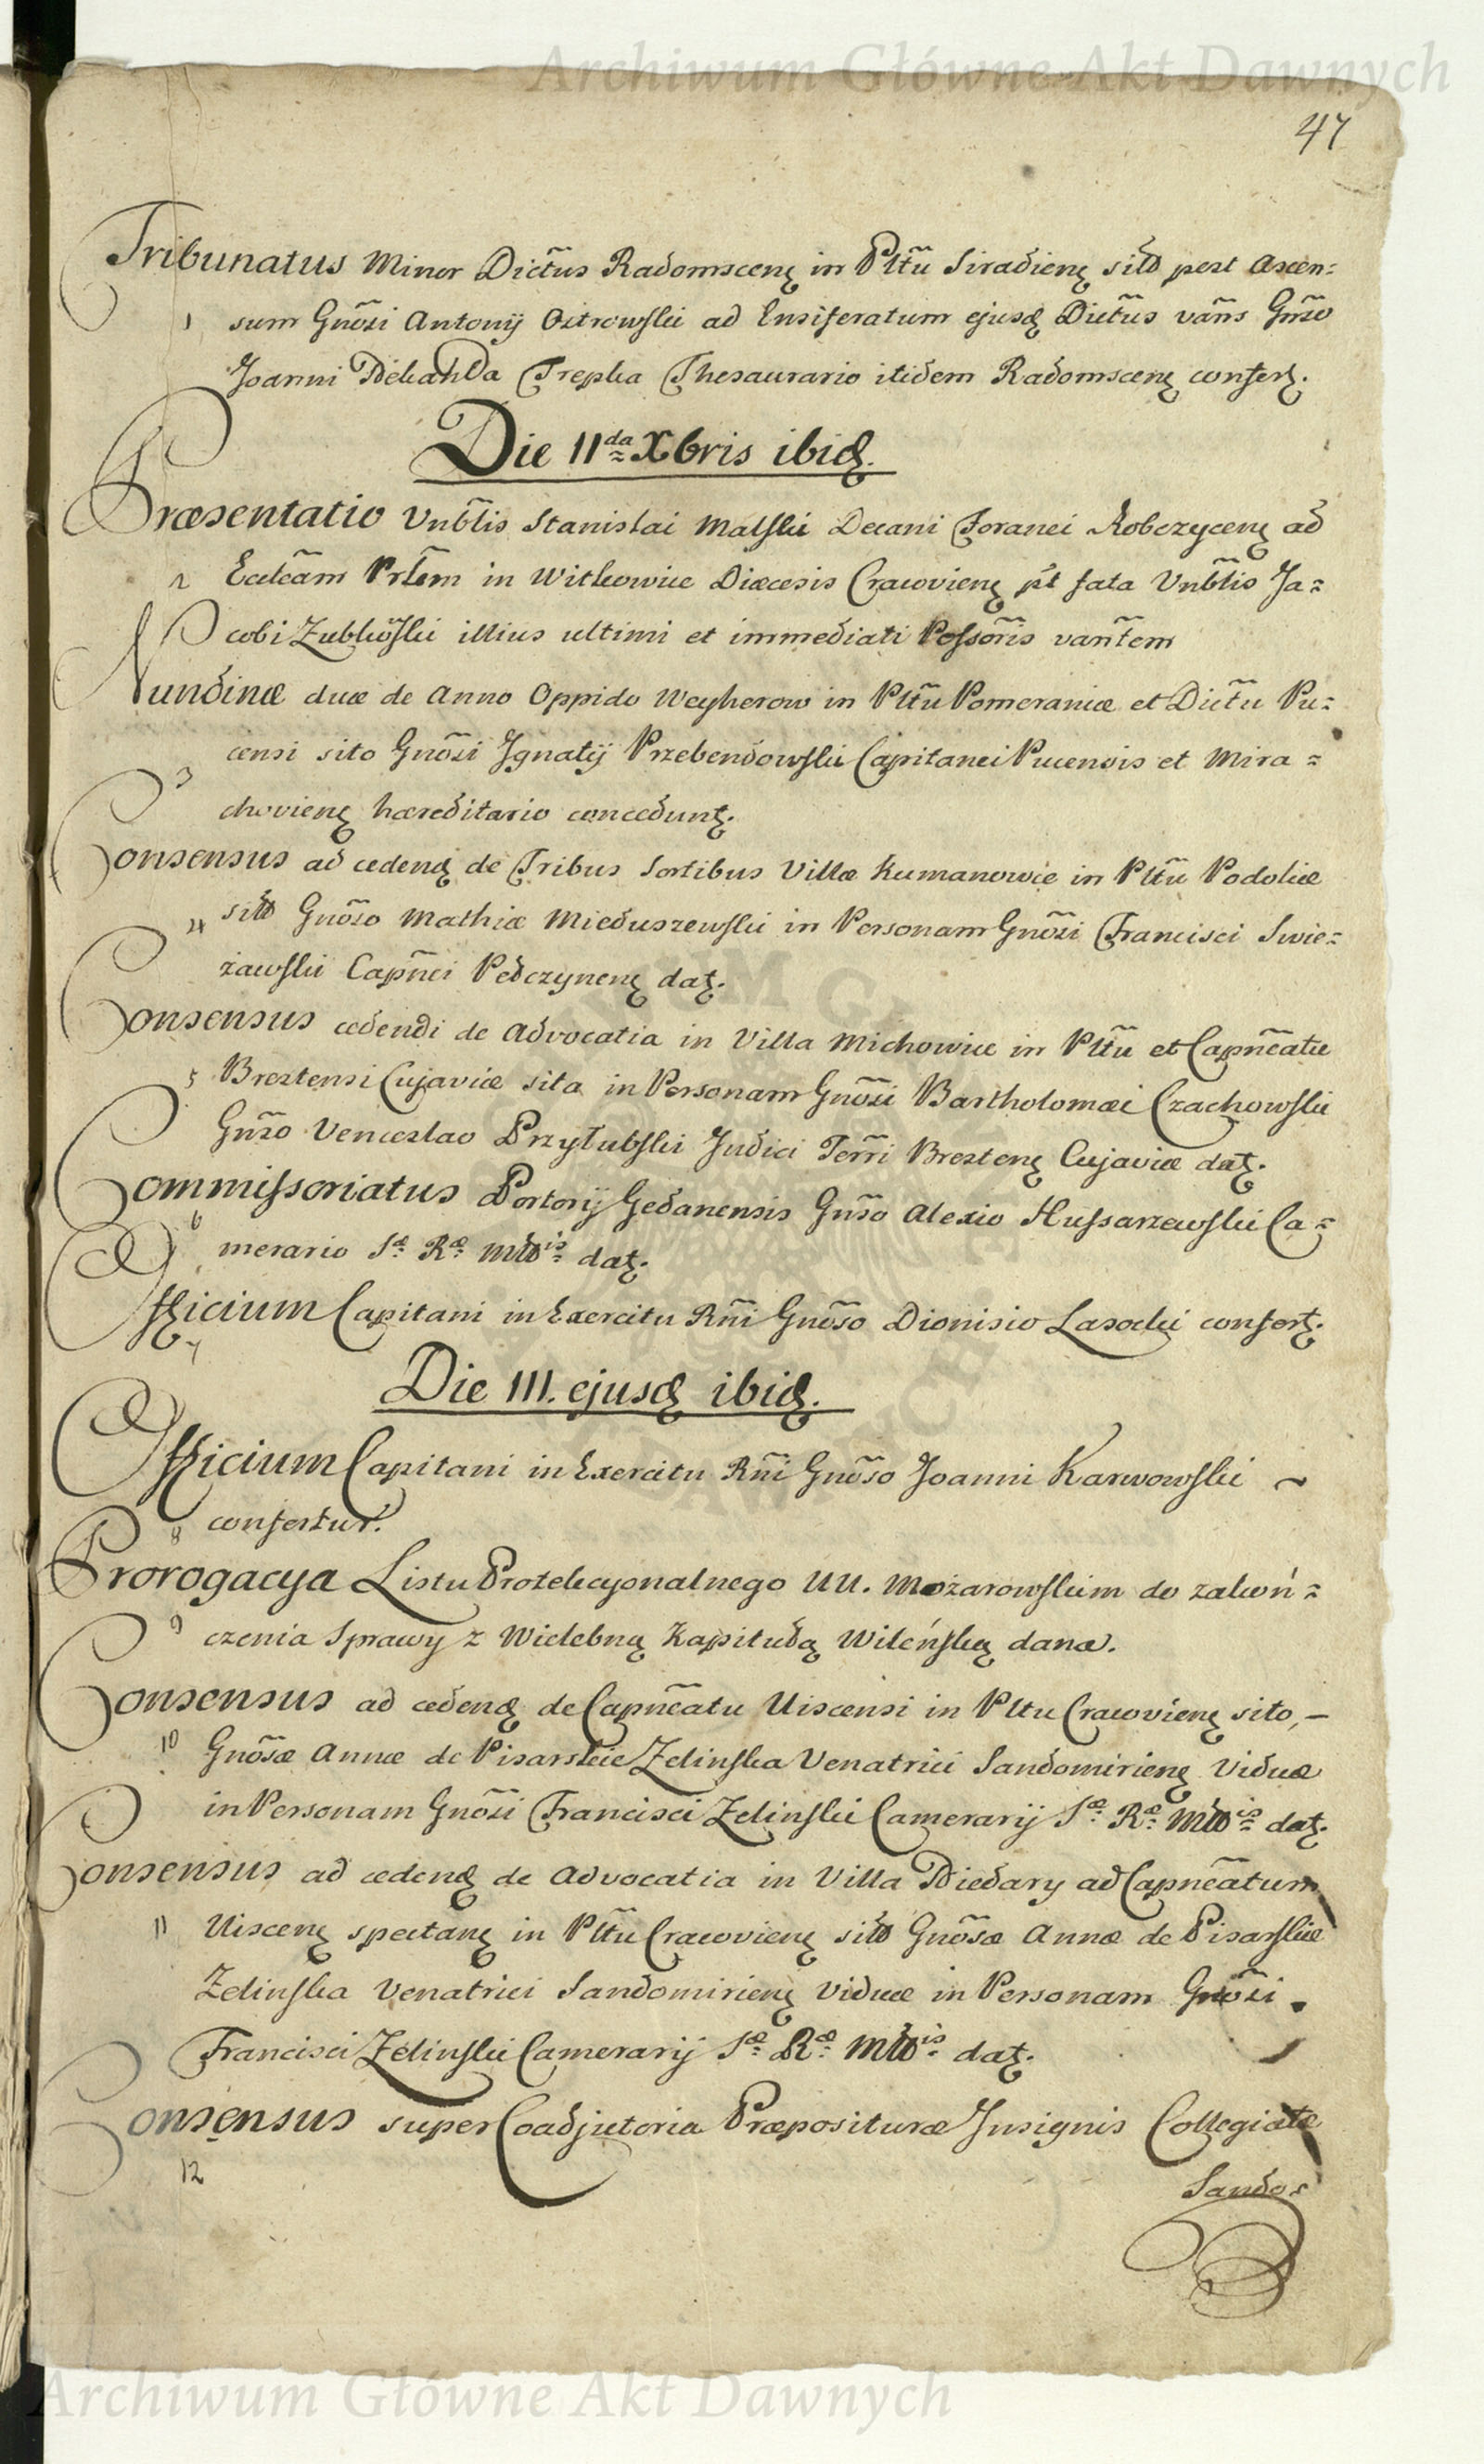 Archiwum Główne Akt Dawnych
47
Tribunatus Minor Dict̃us Radomscenę in Pltũ Siradienę sito post Ascen=
1 sum Gnõsi Antonij Ostrowski ad Ensiferatum ejusdę Dict̃us vañs Gñso
Joanni Nekanda Trepka Thesaurario itidem Radomscenę confertę.
Die IIda Xbris ibidę.
Præsentatio Vnbl̃is Stanislai Malski Decani Foranei Robczycenę ad
2 Eccleãm Prl̃em in Witkowice Diæcesis Cracovienę p̃t fata Vnbl̃is Ja=
cobi Zubkõski illius ultimi et immediati Possoris̃ vañtem
Nundinæ duæ de Anno Oppido Weyherow in Pltũ Pomeraniæ et Dictũ Pu=
censi sito Gnõsi Ignatij Przebendowski Capitanei Pucensis et Mira=
3 chovienę hæreditario conceduntę.
Consensus ad cedendę de Tribus Sortibus Villæ Kumanowce in Pltũ Podoliæ
4 sito Gnõso Mathiæ Mieduszewski in Personam Gnõsi Francisci Swie=
żawski Capñei Pedczynenę datę.
Consensus cedendi de Advocatia in Villa Michowice in Pltũ et Capnẽatu
5 Brestensi Cujaviæ sita in Personam Gnõsi Bartholomæi Czachowski
Gñso Venceslao Przyłubski Judici Terrĩ Brestenę Cujaviæ datę.
Commissoriatus Portorij Gedanensis Gñso Alexio Hussarzewski Ca=
6 merario Sæ Ræ Mttis datę.
Officium Capitani in Exercitu Rñi Gnõso Dionisio Lasocki confertę.
7
Die III. ejusdę ibidę.
Officium Capitani in Exercitu Rñi Gnõso Joanni Karwowski ~
8 confertur.
Prorogacya Listu Protekcyonalnego UU. Możarowskim do zakoń=
9 czenia Sprawy z Wielebną Kapitułą Wileńską dana.
Consensus ad cedendę de Capnẽatu Uiscensi in Pltu Cracovienę sito, –
10 Gnõsæ Annæ de Pisarskie Zelinska Venatrici Sandomirienę Viduæ
in Personam Gnõsi Francisci Zelinski Camerarij Sæ Ræ Mttis datę.
Consensus ad cedendę de Advocatia in Villa Niedary ad Capnẽatum
11 Uiscenę spectanę in Pltũ Cracovienę sito Gnõsæ Annæ de Pisarskie
Zelinska Venatrici Sandomirienę Viduæ in Personam Gnõsi
Francisci Zelinski Camerarij Sæ Ræ Mttis datę.
Consensus super Coadjutoria Præposituræ Insignis Collegiatæ
12
Sandos
Archiwum Główne Akt Dawnych